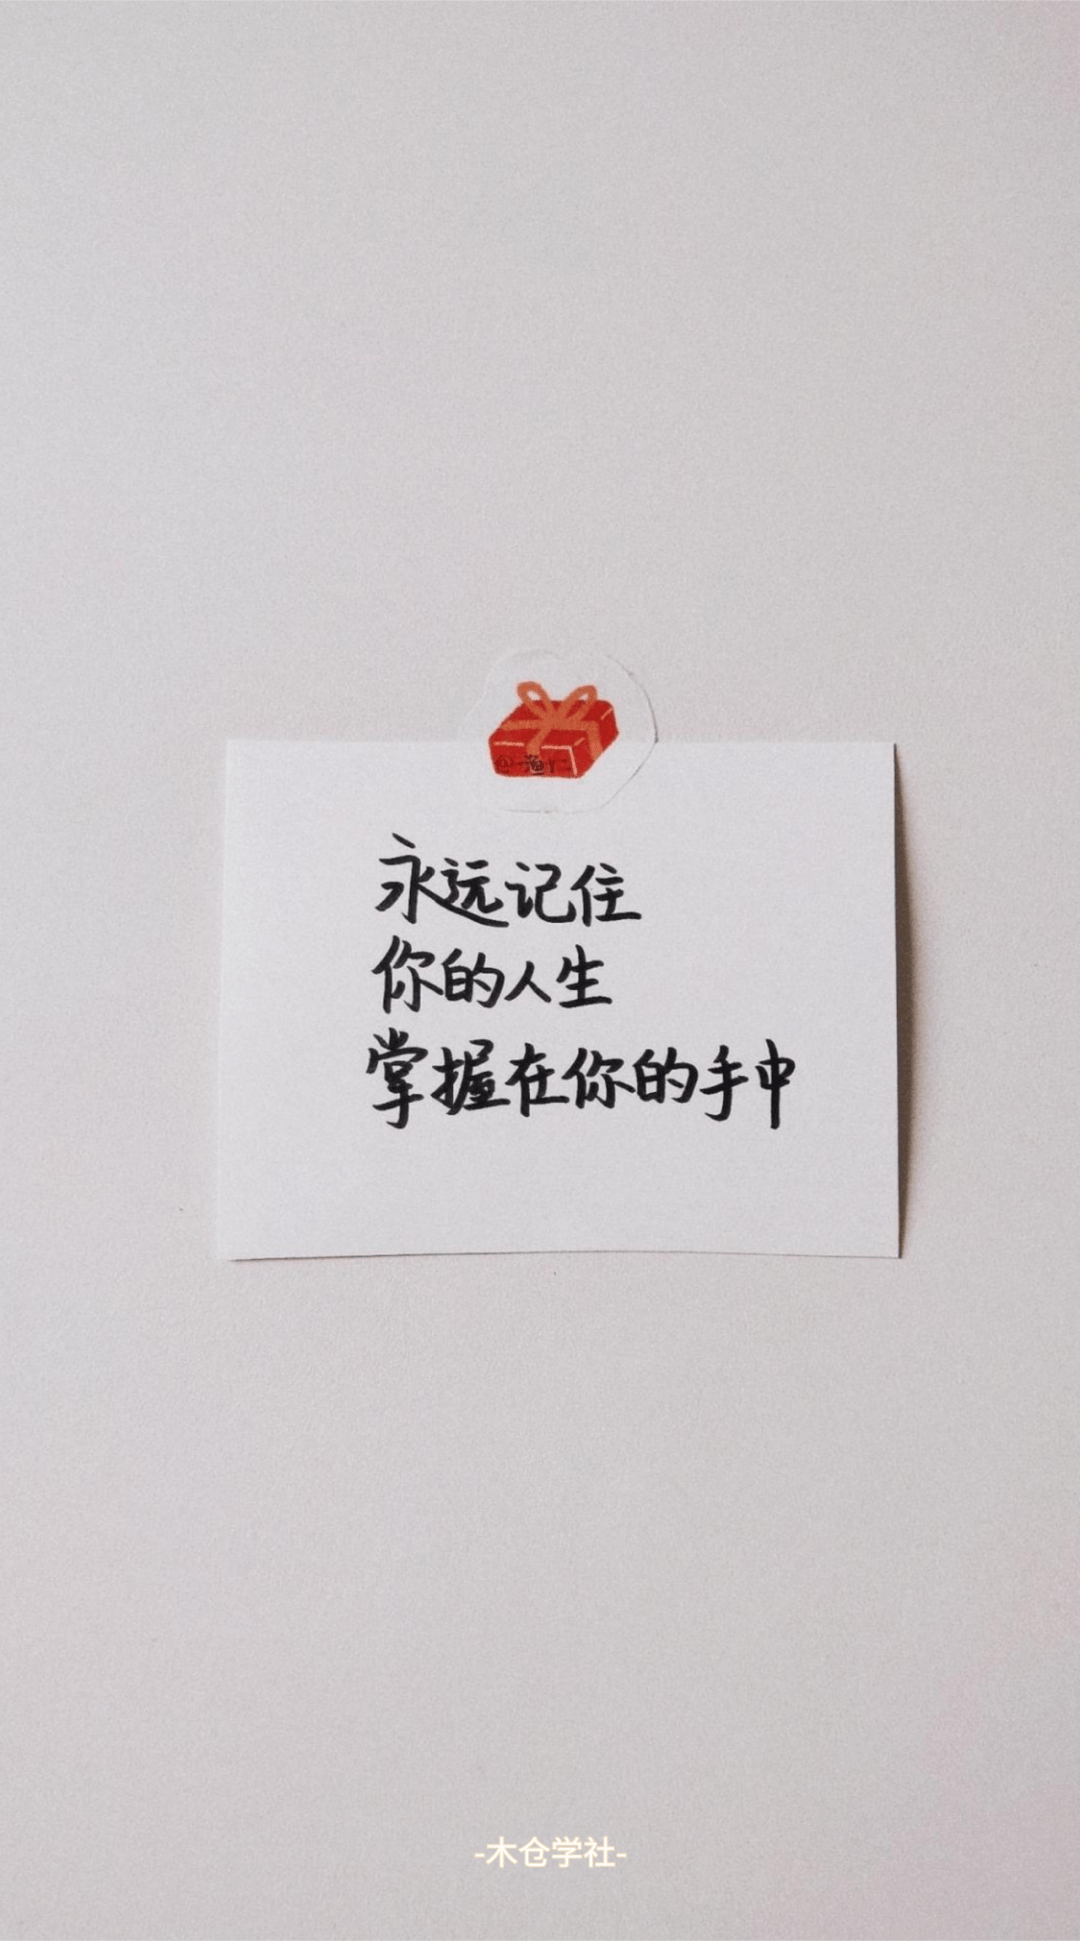 永远记住
你的人生
掌握在你的手中
-木仓学社-